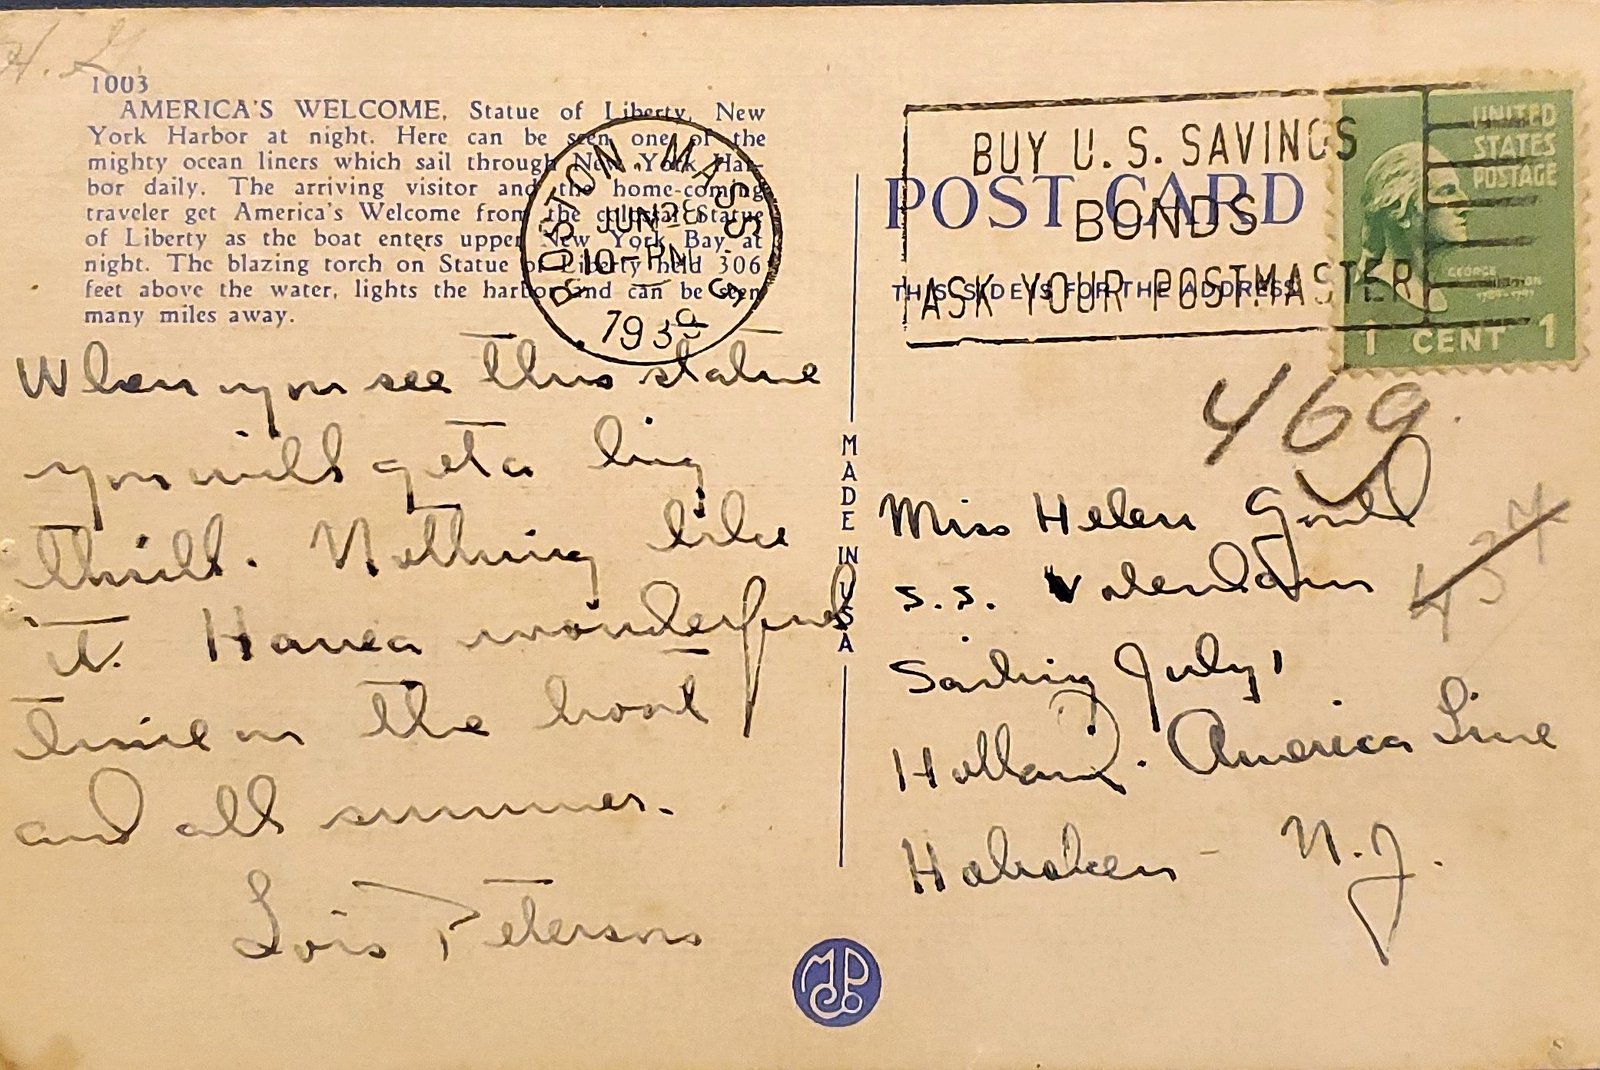 H. G.
1003
AMERICA'S WELCOME, Statue of Liberty, New
York Harbor at night. Here can be seen one of the
mighty ocean liners which sail through New York Har-
bor daily. The arriving visitor and the home-coming
traveler get America's Welcome from the colossal Statue
of Liberty as the boat enters upper New York Bay at
night. The blazing torch on Statue of Liberty held 306
feet above the water, lights the harbor and can be seen
many miles away.
BOSTON, MASS.
JUN 28
10-PM
193
When you see this statue
you will get a big
thrill. Nothing like
it. Have a wonderful
time on the boat
and all summer.
Lois Peterson
MADE IN USA
POST CARD
THIS SIDE IS FOR THE ADDRESS
BUY U.S. SAVINGS
BONDS
ASK YOUR POSTMASTER
UNITED
STATES
POSTAGE
GEORGE
WASHINGTON
1 CENT 1
469
Miss Helen Gould
S.S. Volendam
437
Sailing July 1
Holland-America Line
Hoboken - N.J.